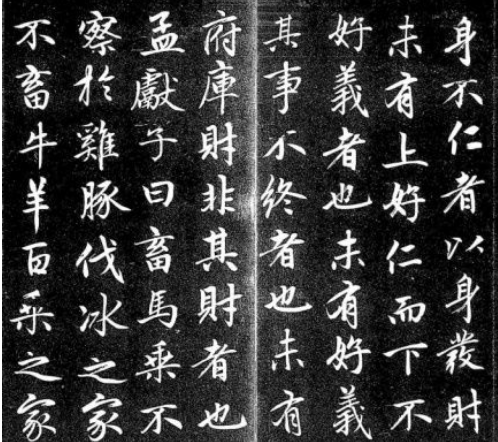 身不仁者以身發財
未有上好仁而下不
好義者也未有好義
其事不終者也未有
府庫財非其財者也
孟獻子曰畜馬乘不
察於雞豚伐冰之家
不畜牛羊百乘之家